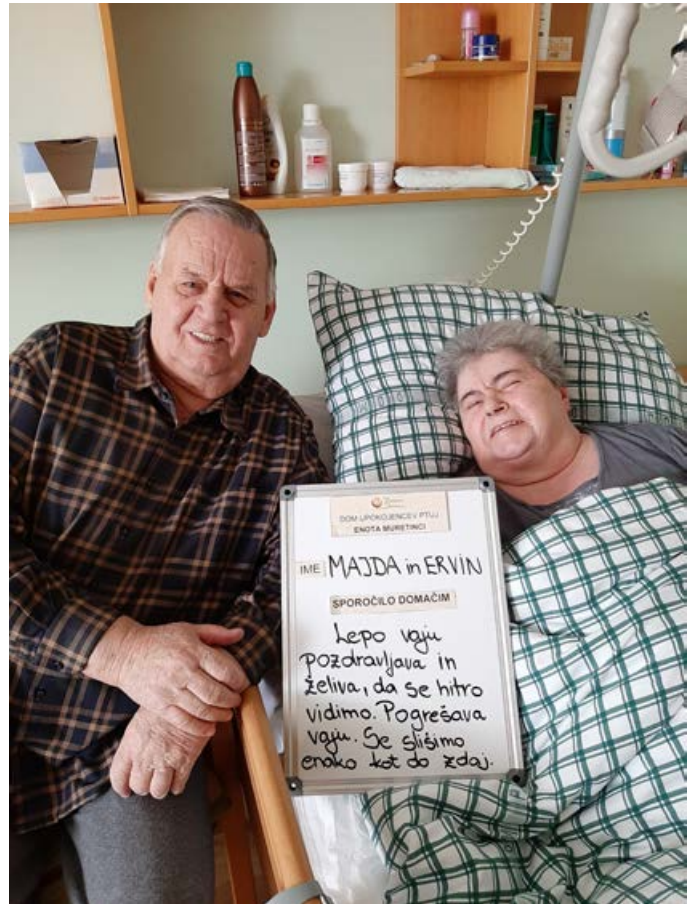 DOM UPOKOJENCEV PTUJ
ENOTA MURETINCI
IME MAJDA in ERVIN
SPOROČILO DOMAČIM
Lepo vaju
pozdravljava in
želiva, da se hitro
vidimo. Pogrešava
vaju. Se slišimo
enako kot do zdaj.